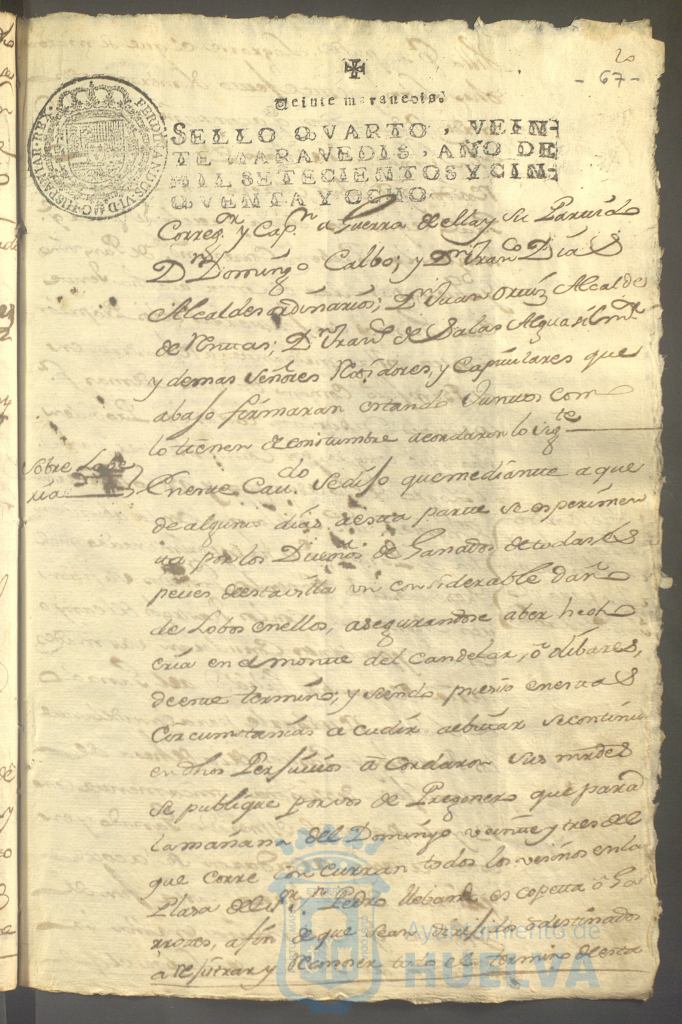 20
- 67 -
Veinte maravedis.
SELLO QVARTO, VEIN-
TE MARAVEDIS, AÑO DE
MIL SETECIENTOS Y CIN-
QVENTA Y OCHO.
FERDINANDUS VI D G HISPANIAR REX
Correg.r y Cap.n a Guerra de ella y su Partido
D.n Domingo Calbo; y D.n Fran.co Dias
Alcaldes ordinarios; D.n Juan Ortiz Alcalde
de D.n Fran.co de Salas Alguasil m.r
y demas señores Rexidores, y Capitulares que
abajo firmaran estando Juntos como
lo tienen de costumbre acordaron lo sig.te
Sobre Lobe
ria
En este Cav.do se dijo que mediante a que
de algunos dias a esta parte se esperimen
ta por los Dueños de Ganados de todas es
pecies de esta villa un considerable daño
de Lobos en ellos, asegurandose aber hecho
cria en el monte del Candelar, ó
de este termino; y siendo presiso en estas
Circumstansias acudir a ebitar se continu
en dhos Perjuisios acordaron sus mrdes
se publique por vos de Pregonero que para
la mañana del Domingo veinte y tres del
que corre concurran todos los vesinos en la
Plasa de el S.r S.n Pedro llebando escopeta ó Ga
rrotes, a fin de que sean destinados
a rejistrar y todo el termino de esta
Ayuntamiento de
HUELVA